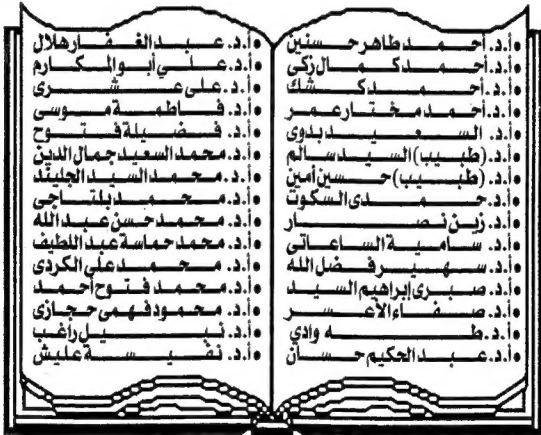 • أ.د. أحمد طاهر حسنين
• أ.د. أحمد كمال زكى
• أ.د. أحمد كشك
• أ.د. أحمد مختار عمر
• أ.د. السعيد بدوى
• أ.د. (طبيب) السيد سالم
• أ.د. (طبيب) حسين أمين
• أ.د. حمدى السكوت
• أ.د. زين نصار
• أ.د. سامية الساعاتى
• أ.د. سهير فضل الله
• أ.د. صبرى إبراهيم السيد
• أ.د. صفاء الأعسر
• أ.د. طه وادي
• أ.د. عبد الحكيم حسان
• أ.د. عبد الغفار هلال
• أ.د. علي أبو المكارم
• أ.د. على عشرى
• أ.د. فاطمة موسى
• أ.د. فضيلة فتوح
• أ.د. محمد السعيد جمال الدين
• أ.د. محمد السيد الجليند
• أ.د. محمد بلتاجى
• أ.د. محمد حسن عبد الله
• أ.د. محمد حماسة عبد اللطيف
• أ.د. محمد على الكردى
• أ.د. محمد فتوح أحمد
• أ.د. محمود فهمى حجازى
• أ.د. نبيل راغب
• أ.د. نفيسة عليش